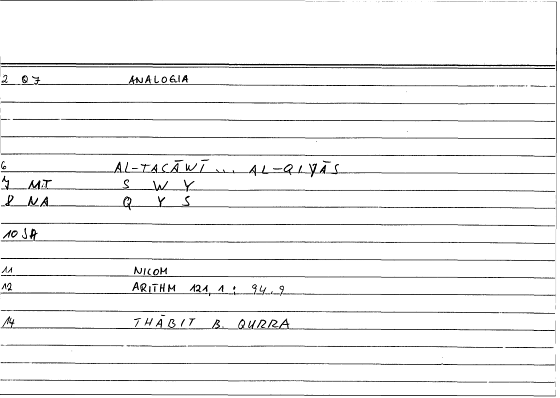 2 07 ANALOGIA
6 AL-TASĀWĪ ... AL-QIYĀS
7 MT S W Y
8 NA Q Y S
10 SA
11 NICOM
12 ARITHM 121, 1 : 94, 9
14 THĀBIT B. QURRA